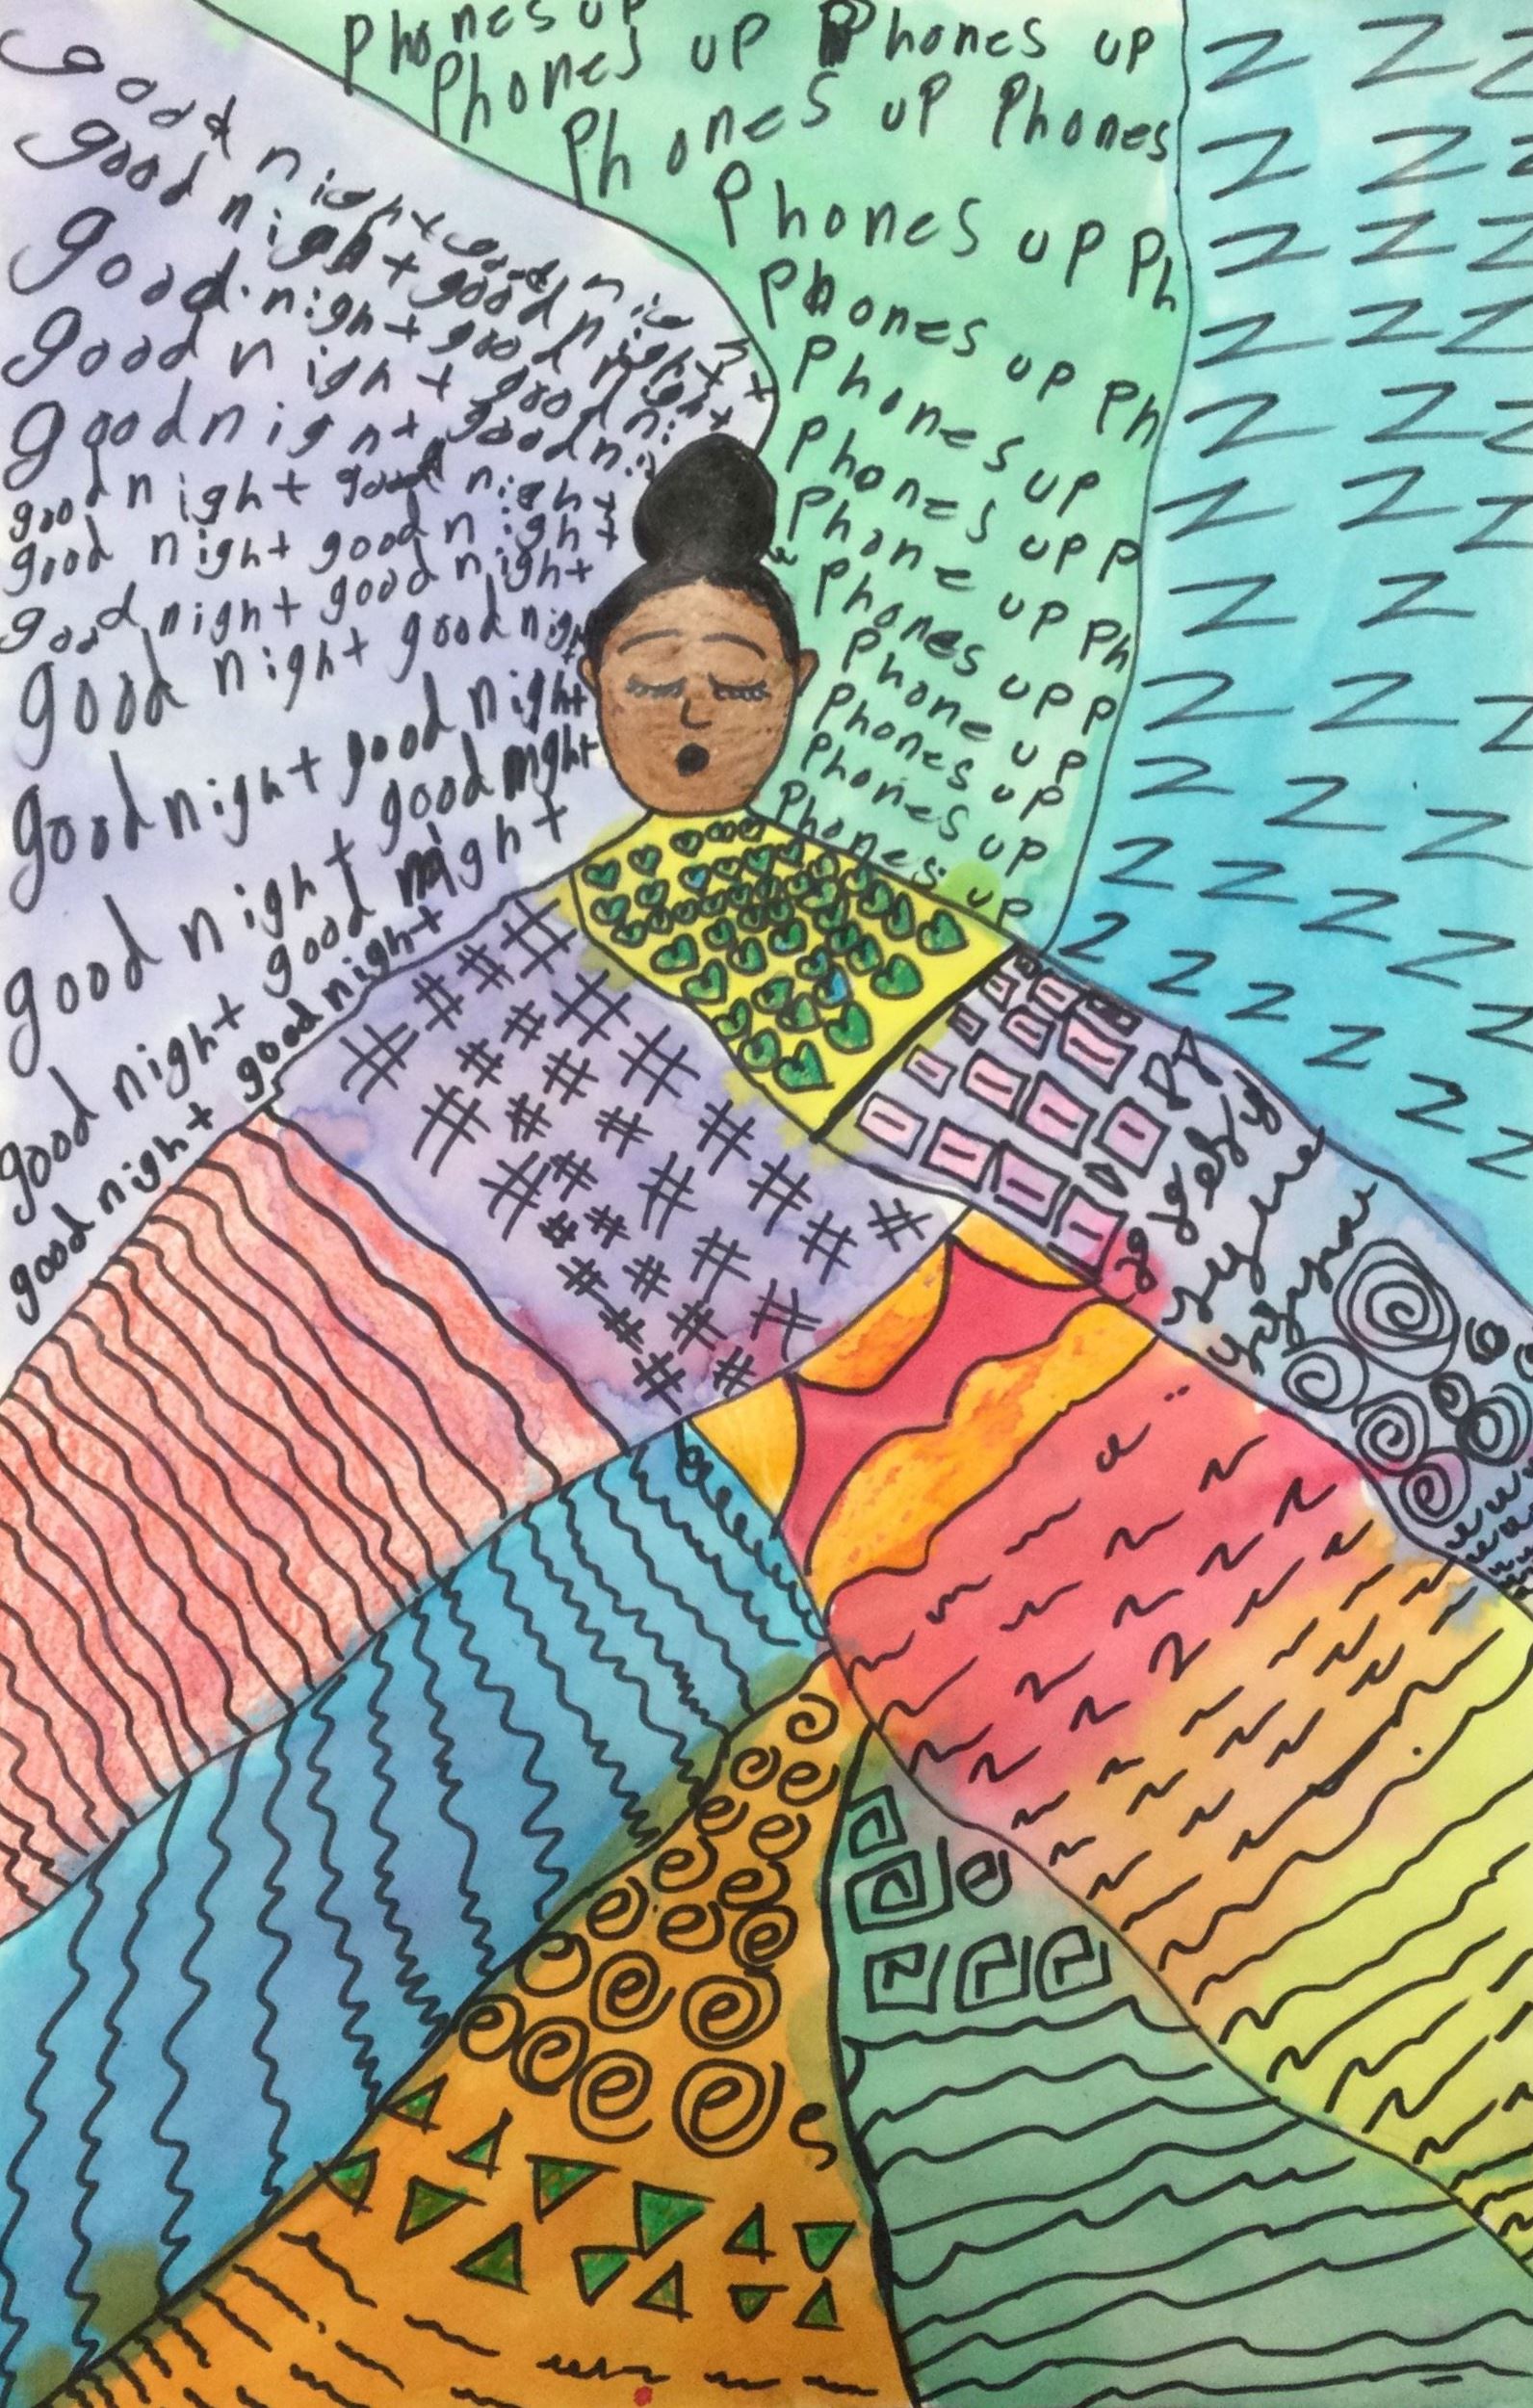 good night good night
good night good night
good night good night
good night good ni
good night good ni
good night good night
good night good night
good night good night
good night good night
good night good night
good night good night
good night good night
good night good night
Phones up
Phones up Phones up
Phones up Phones
Phones up Ph
Phones up Ph
Phones up
Phones up P
Phone up Ph
Phones up P
Phone up
Phones up
Phones up
Phones up
Z Z Z
Z Z Z
Z Z Z
Z Z Z
Z Z Z
Z Z Z
Z Z
Z Z Z
Z Z Z
Z Z Z Z
Z Z Z Z
Z Z
Z Z